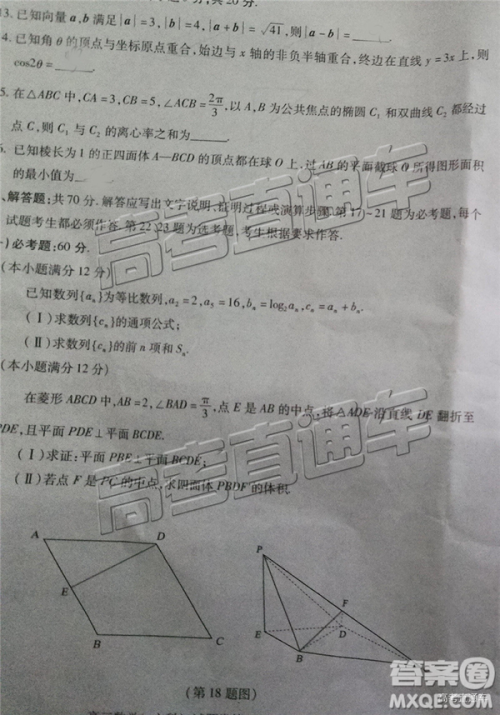 3. 已知向量 a,b 满足|a|=3,|b|=4,|a+b|=√41,则|a-b|=______.
4. 已知角θ的顶点与坐标原点重合,始边与x轴的非负半轴重合,终边在直线y=3x上,则
cos2θ=______.
5. 在△ABC中,CA=3,CB=5,∠ACB=2π/3,以A,B为公共焦点的椭圆C₁和双曲线C₂都经过
点C,则C₁与C₂的离心率之和为______.
已知棱长为1的正四面体A—BCD的顶点都在球O上,过AB的平面截球O所得图形面积
的最小值为
解答题:共70分. 解答应写出文字说明,证明过程或演算步骤. 第17~21题为必考题,每个
试题考生都必须作答. 第22,23题为选考题,考生根据要求作答.
)必考题:60分.
(本小题满分12分)
已知数列{aₙ}为等比数列,a₂=2,a₅=16,bₙ=log₂aₙ,cₙ=aₙ+bₙ.
(Ⅰ)求数列{cₙ}的通项公式;
(Ⅱ)求数列{cₙ}的前n项和Sₙ.
(本小题满分12分)
在菱形ABCD中,AB=2,∠BAD=π/3,点E是AB的中点,将△ADE沿直线DE翻折至
PDE,且平面PDE⊥平面BCDE.
(Ⅰ)求证:平面PBE⊥平面BCDE;
(Ⅱ)若点F是PC的中点,求四面体PBDF的体积.
A D E B C
P F E D B
(第18题图)
高考直通车
高考直通车
答案圈